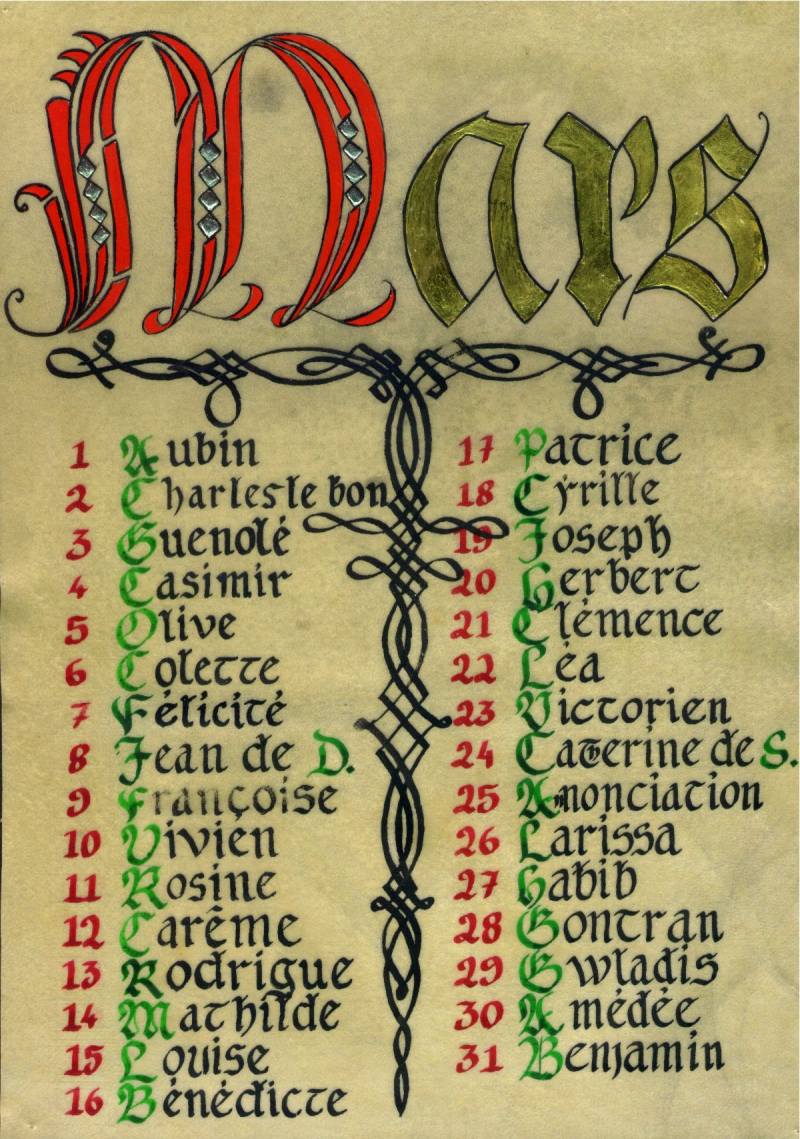 Mars
1 Aubin
2 Charles le bon
3 Guenolé
4 Casimir
5 Olive
6 Colette
7 Félicité
8 Jean de D.
9 Françoise
10 Vivien
11 Rosine
12 Carême
13 Rodrigue
14 Mathilde
15 Louise
16 Bénédicte
17 Patrice
18 Cyrille
19 Joseph
20 Herbert
21 Clémence
22 Léa
23 Victorien
24 Caterine de S.
25 Annonciation
26 Larissa
27 Habib
28 Gontran
29 Gwladis
30 Amédée
31 Benjamin